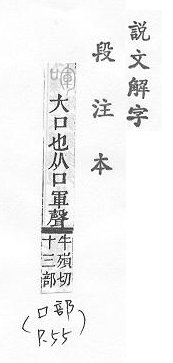 說文解字
段注本
喗
大口也从口軍聲
牛殞切
十三部
(口部
P.55)